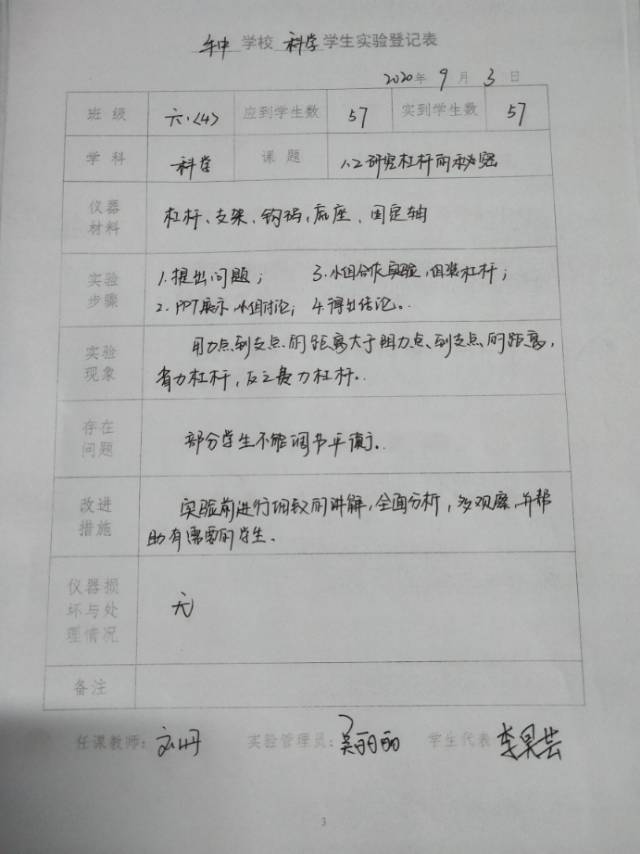 牟中学校 科学 学生实验登记表
2020年 9 月 3 日
班级 六.〈4〉 应到学生数 57 实到学生数 57
学科 科学 课题 1.2研究杠杆的秘密
仪器 杠杆、支架、钩码、底座、固定轴
材料
实验 1.提出问题； 3.小组合作实验,组装杠杆；
步骤 2.PPT展示 小组讨论； 4.得出结论。
实验 用力点到支点的距离大于阻力点、到支点的距离,
现象 省力杠杆,反之费力杠杆。
存在 部分学生不能调节平衡。
问题
改进 实验前进行细致的讲解,全面分析,多观察,并帮
措施 助有需要的学生。
仪器损
坏与处 无
理情况
备注
任课教师：刘丹 实验管理员：吴丽丽 学生代表：李果芸
3